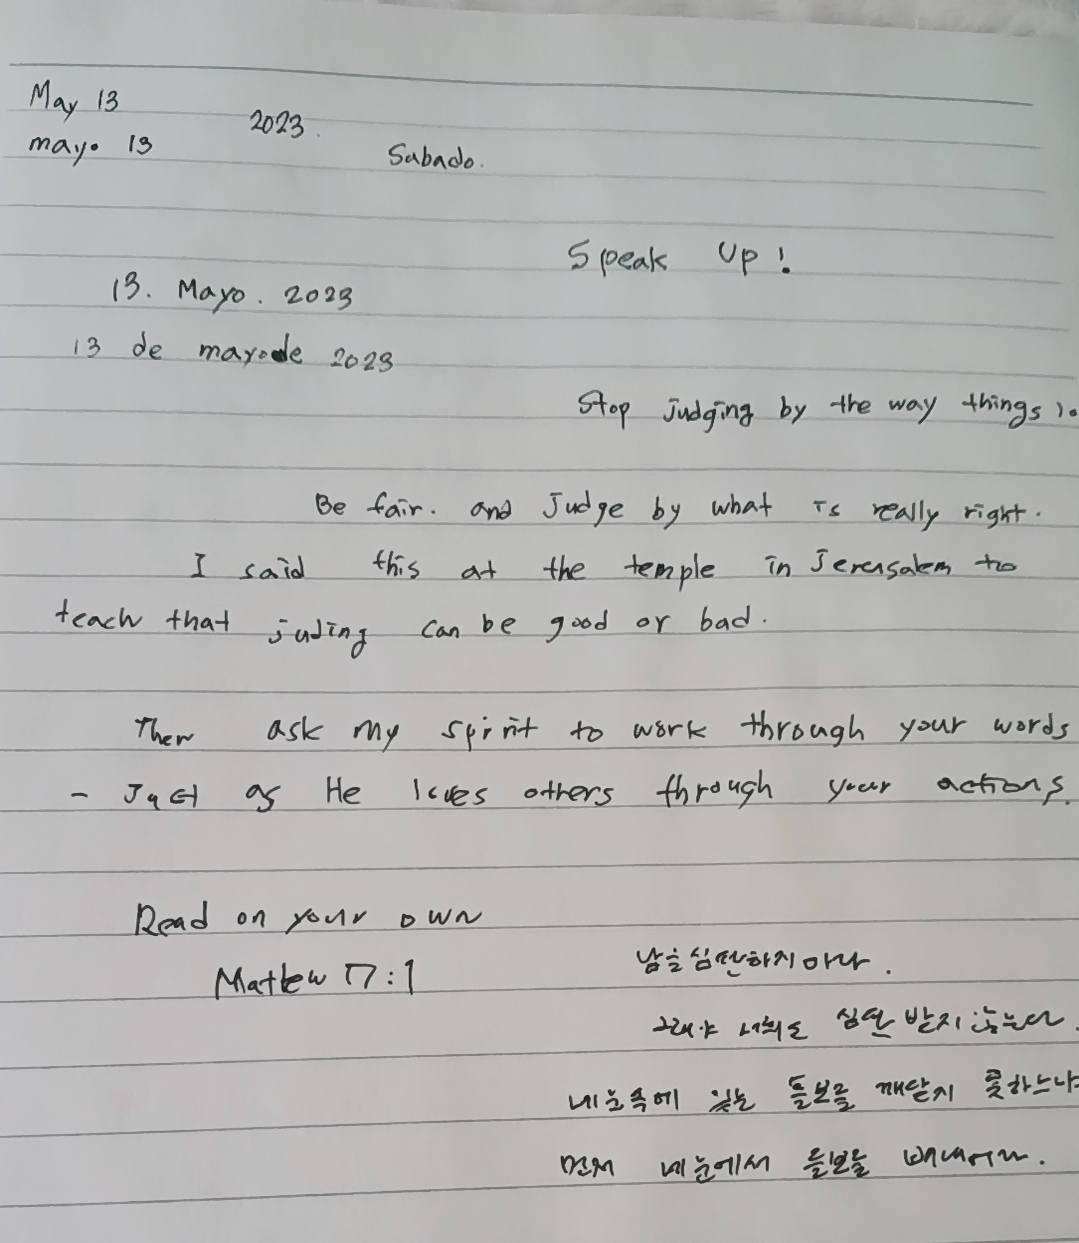 May 13
2023.
mayo 13
Sabado.
Speak Up!
13. Mayo. 2023
13 de mayo de 2023
Stop judging by the way things
Be fair. and Judge by what is really right.
I said this at the temple in Jerusalem to
teach that juding can be good or bad.
Then ask my spirit to work through your words
- Just as He loves others through your actions.
Read on your own
Mattew 7:1
남을 심판하지 마라.
그래야 너희도 심판 받지 않는다.
네 눈 속에 있는 들보를 깨닫지 못하느냐
먼저 네 눈에서 들보를 빼내어라.